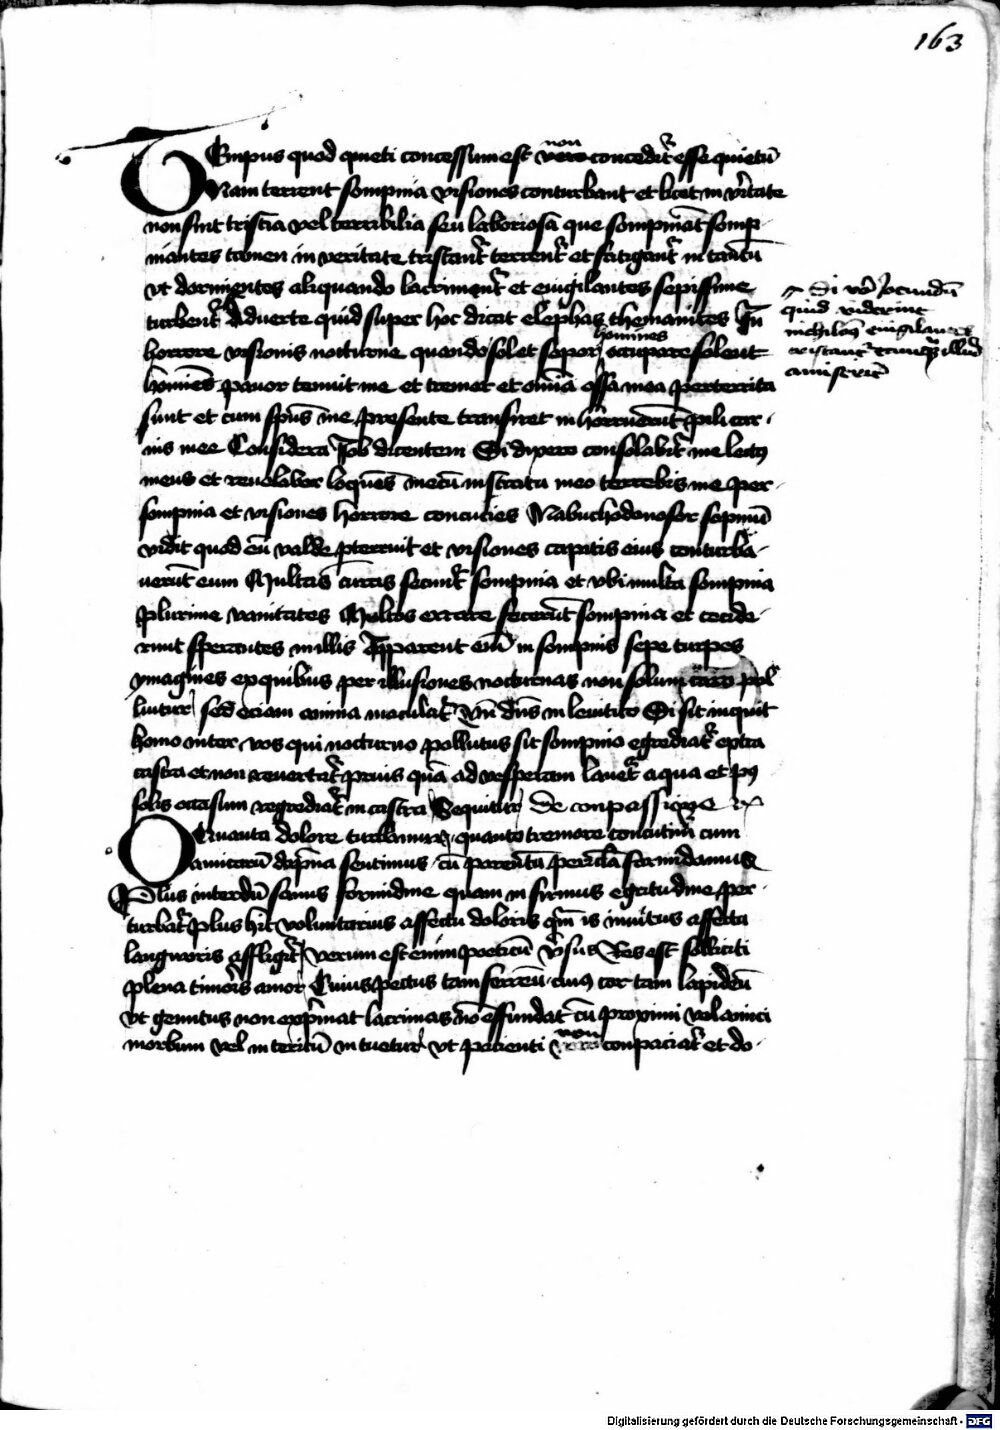 163
TEmpus quod quieti concessum est non concedit᷑ esse quietū
Nam terrent sompnia visiones conturbant et licet in v̄itate
non sint tristia vel terribilia seu laboriosa que sompniāt somp
niantes tamen in veritate tristant᷑ terrent᷑ et fatigant᷑ in tantū
vt dormientes aliquando lacriment᷑ et euigilantes sepissime
turbent᷑ Aduerte quid super hoc dicat elephas themanites In
horrore visionis nocturne quando solet sopor homines occupare
pauor tenuit me et tremor et om̄ia ossa mea perterrita
sunt et cum sp̄us me presente transiret inhorruerūt pili car
nis mee Considera Job dicentem Si dixero consolabit᷑ me lect9
meus et reuelabor loquēs mecū in stratu meo terrebis me per
sompnia et visiones horrore concucies Nabuchodonosor sopniū
vidit quod eū valde pterruit et visiones capitis eius conturba
uerūt eum Multas curas secunt᷑ sompnia et vbi multa sompnia
plurime vanitates Multos errare fecerūt sompnia et cecide
runt sperantes in illis Apparent em̄ in sompnis sepe turpes
ymagines ex quibus per illusiones nocturnas non solum caro pol
luitur sed eciam anima maculat᷑ Vn̄ dn̄s in leuitico Si sit inquit
homo inter vos qui nocturno pollutus sit sompnio egrediat᷑ extra
castra et non reuertat᷑ prius quā ad vesperam lauet᷑ aqua et p9
solis occasum regrediat᷑ in castra Sequitur De conpassione
O Quanto dolore turbamur quanto tremore concutim᷑ cum
amicorū dāpna sentimus cū parentū pericla formidamus
Plus interdū sanus formidine quam in firmus egritudine per
turbat᷑ plus hic voluntarius affectu doloris qm̄ is inuitus affectu
langworis affligit᷑ verum est enim poeticū v̄sus Res est solliciti
plena timoris amor Cuius pectus tam ferreū cui9 cor tam lapideū
vt gemitus non exp̄mat lacrimas nō effundat cū proximi vel amici
morbum vel interitū intuetur vt pacienti non conpaciat᷑ et do
Si v̄o iocundū
quid viderint
nichilom̄ euigilantes
tristant᷑ tamq̄ illud
amiserīt
Digitalisierung gefördert durch die Deutsche Forschungsgemeinschaft - DFG